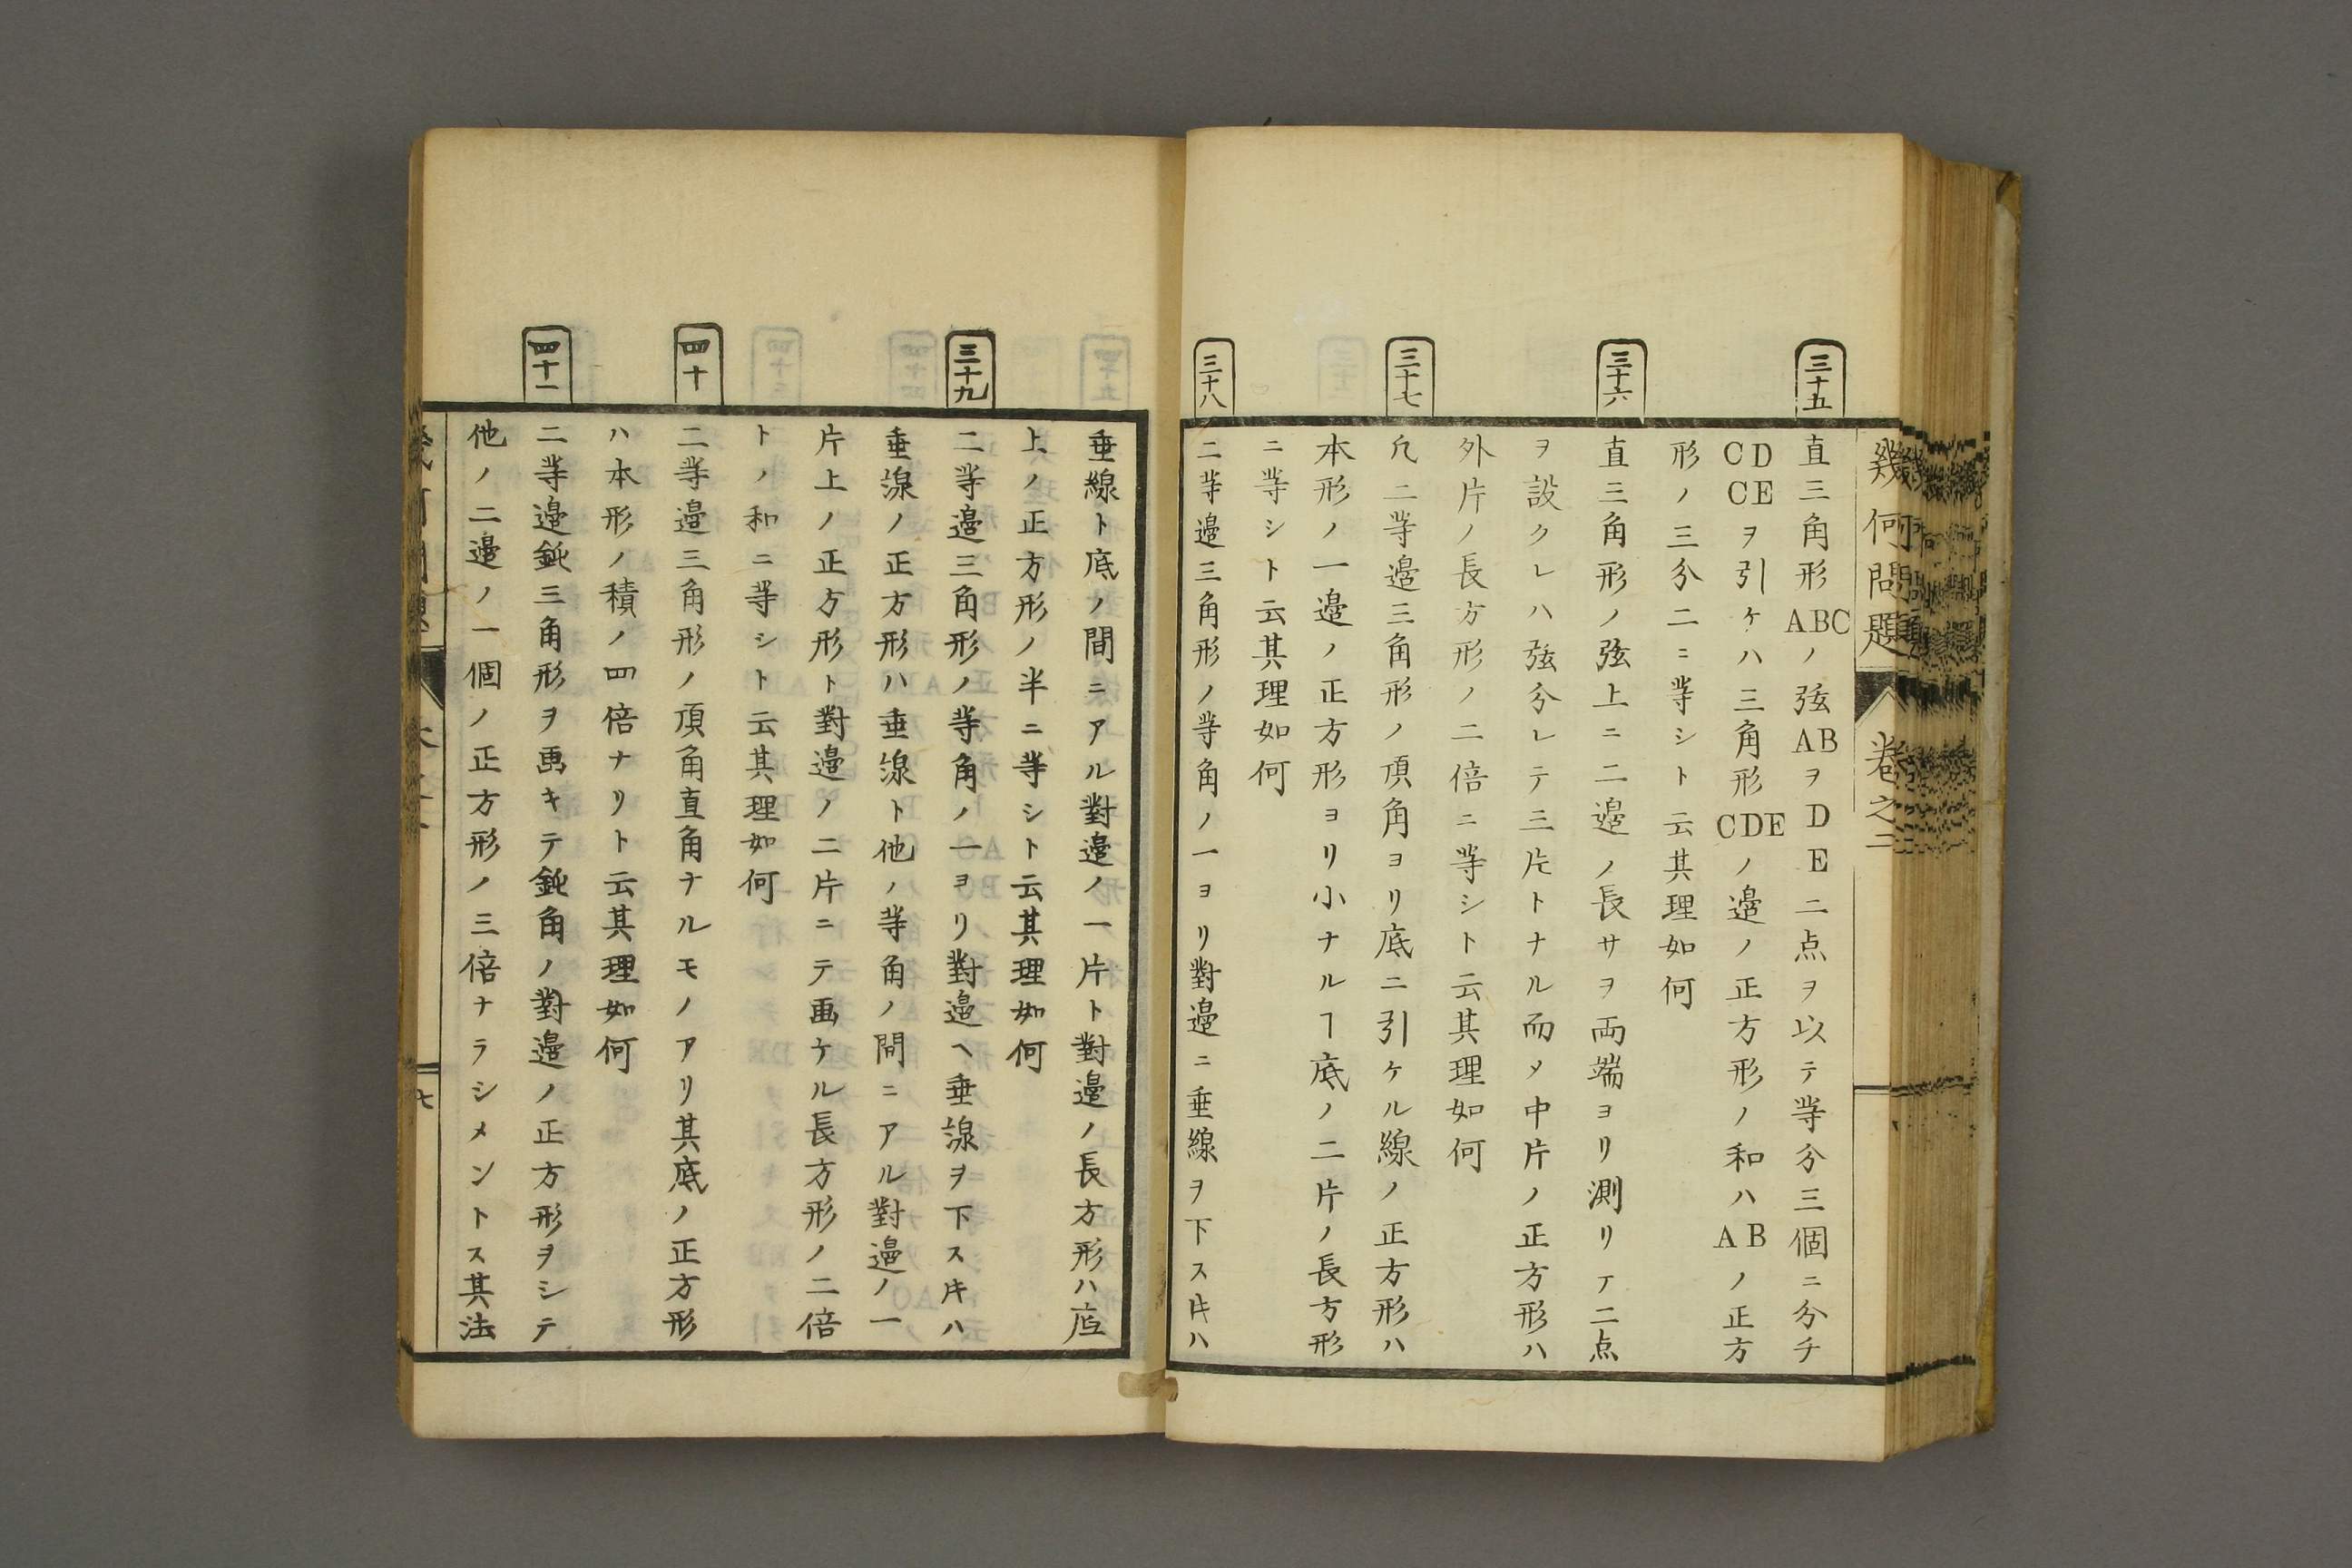 幾何問題
卷之二
三十五
直三角形ABCノ弦ABヲDE二点ヲ以テ等分三個ニ分チ
CDCEヲ引ケハ三角形CDEノ邉ノ正方形ノ和ハABノ正方
形ノ三分二ニ等シト云其理如何
三十六
直三角形ノ弦上ニ二邉ノ長サヲ両端ヨリ測リテ二点
ヲ設クレハ弦分レテ三片トナル而メ中片ノ正方形ハ
外片ノ長方形ノ二倍ニ等シト云其理如何
三十七
凢二等邉三角形ノ頂角ヨリ底ニ引ケル線ノ正方形ハ
本形ノ一邉ノ正方形ヨリ小ナルヿ底ノ二片ノ長方形
ニ等シト云其理如何
三十八
二等邉三角形ノ等角ノ一ヨリ對邉ニ垂線ヲ下ス𪜈ハ
垂線ト底ノ間ニアル對邉ノ一片ト對邉ノ長方形ハ底
上ノ正方形ノ半ニ等シト云其理如何
三十九
二等邉三角形ノ等角ノ一ヨリ對邉ヘ垂線ヲ下ス𪜈ハ
垂線ノ正方形ハ垂線ト他ノ等角ノ間ニアル對邉ノ一
片上ノ正方形ト對邉ノ二片ニテ画ケル長方形ノ二倍
トノ和ニ等シト云其理如何
四十
二等邉三角形ノ頂角直角ナルモノアリ其底ノ正方形
ハ本形ノ積ノ四倍ナリト云其理如何
四十一
二等邉鈍三角形ヲ画キテ鈍角ノ對邉ノ正方形ヲシテ
他ノ二邉ノ一個ノ正方形ノ三倍ナラシメントス其法
七